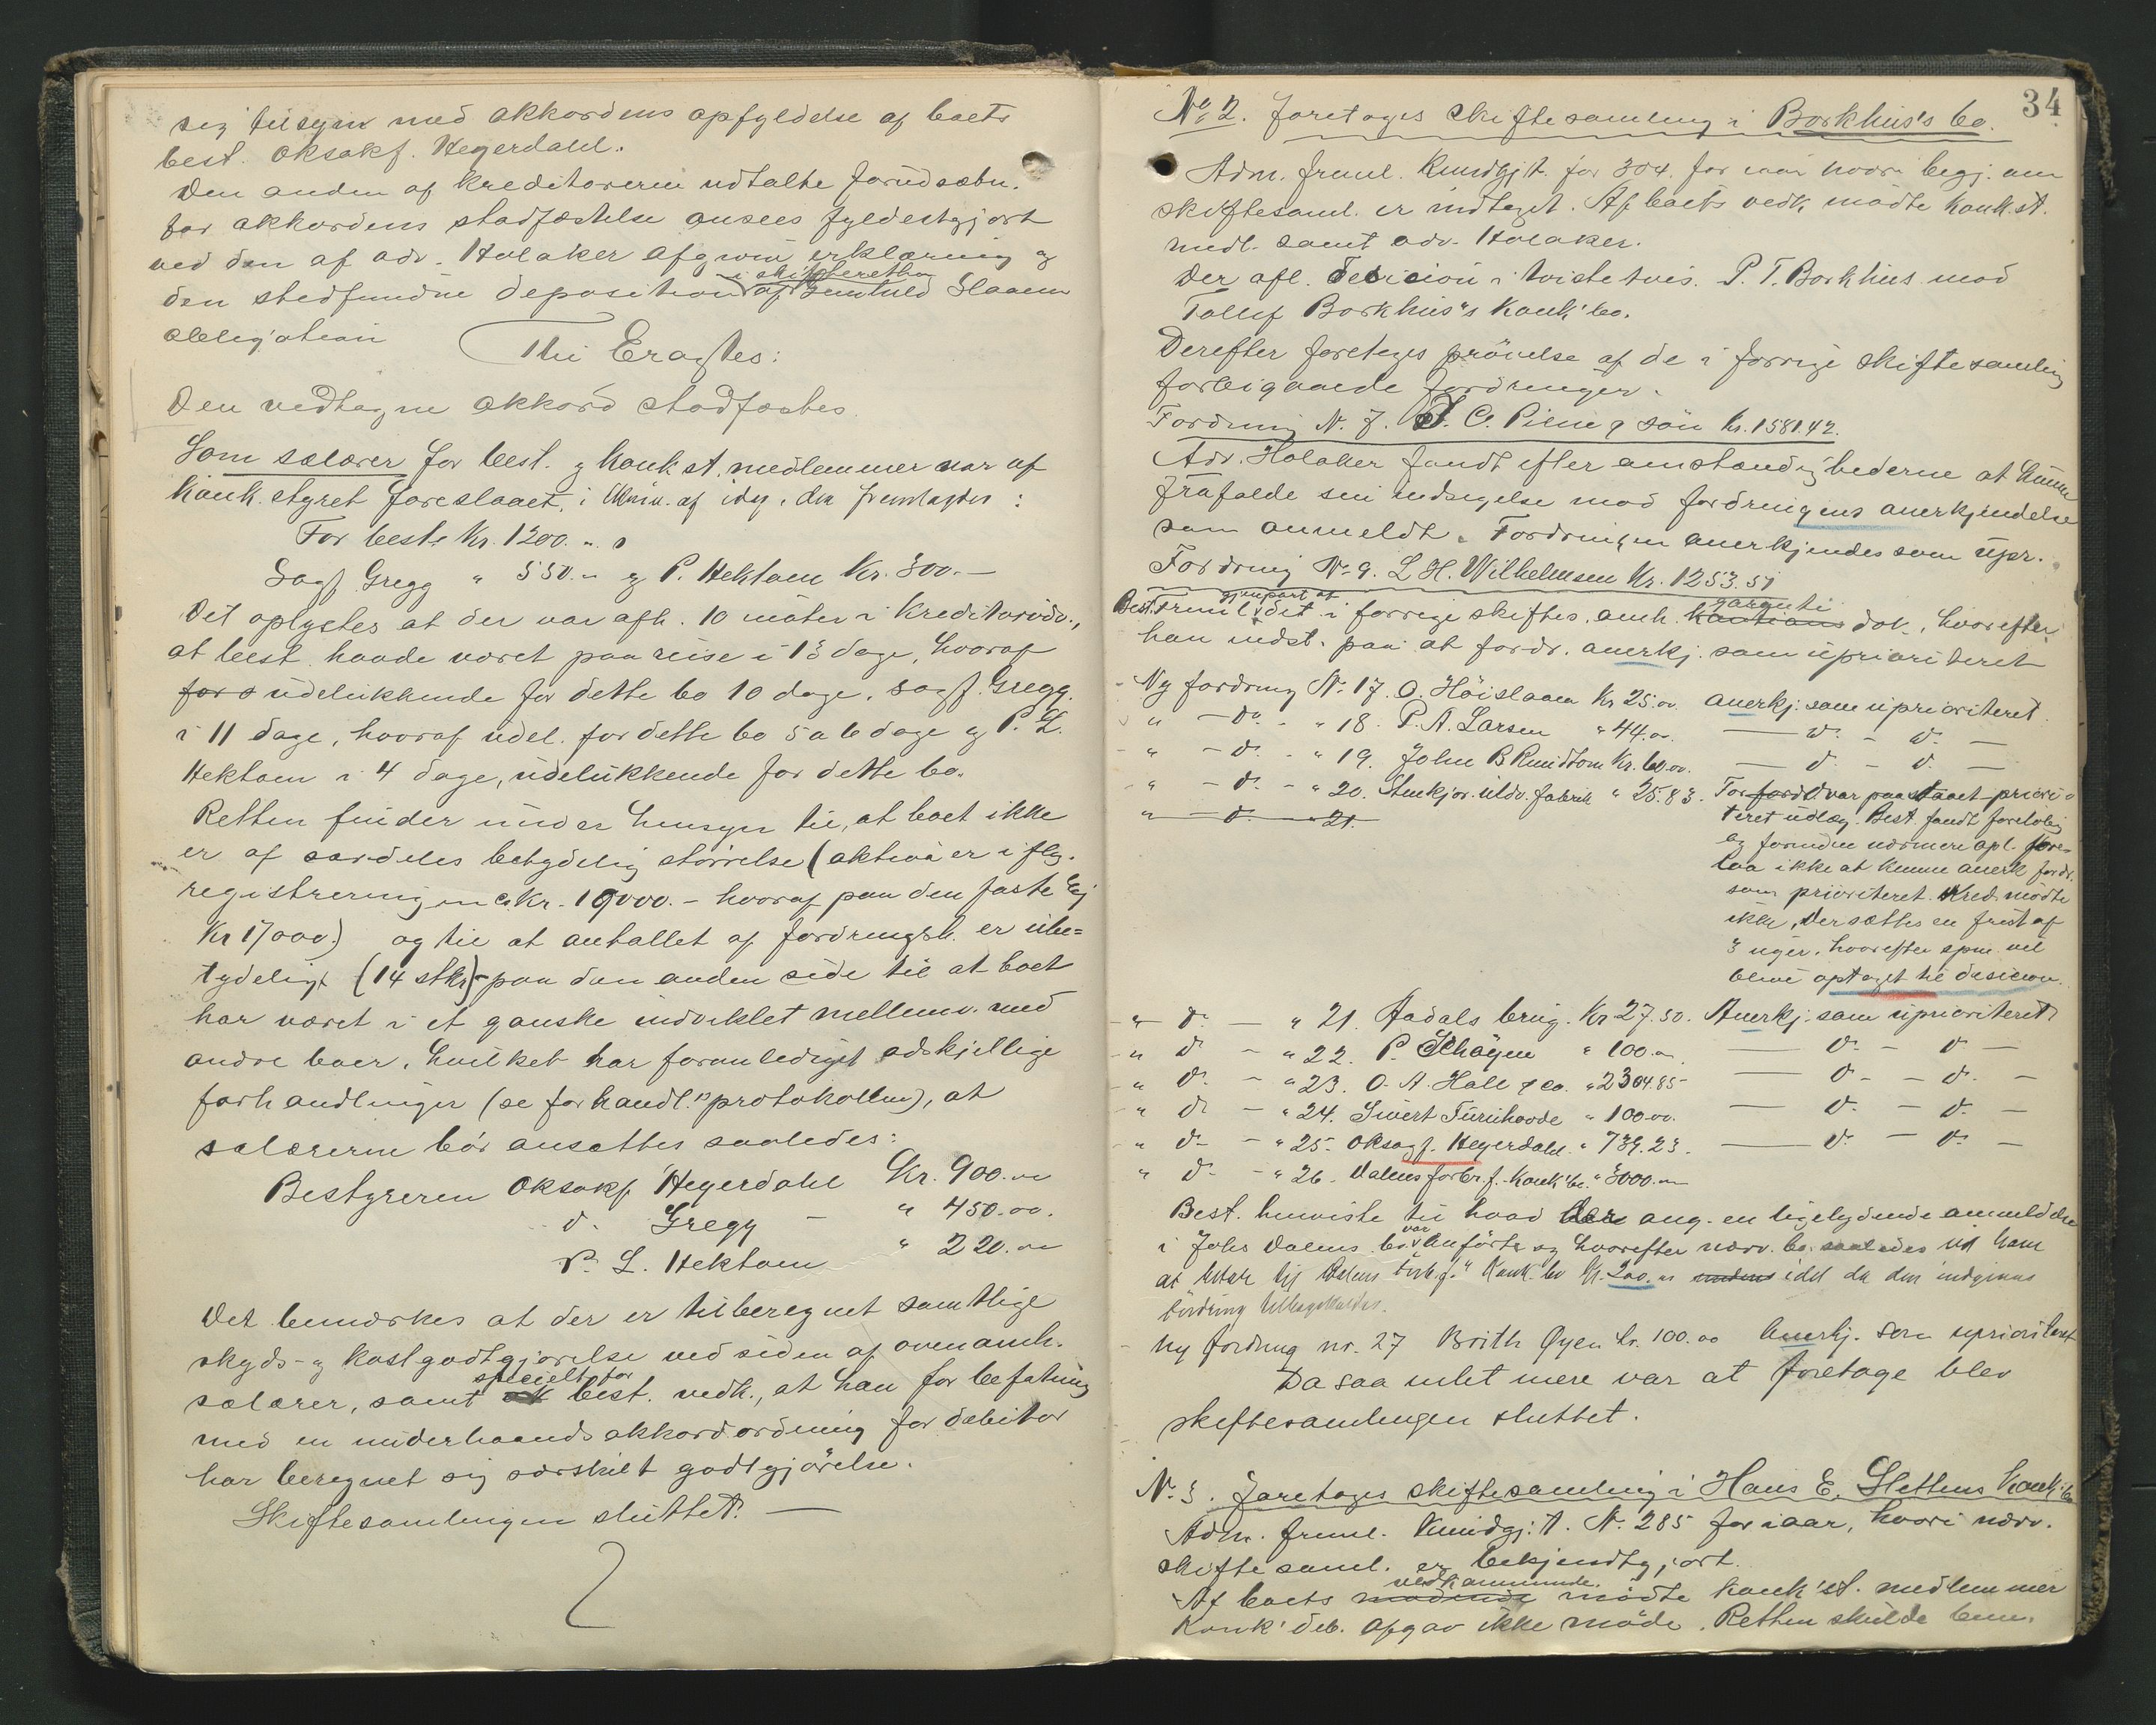 sig tilsyn med akkordens opfyldelse af boets
best. oksakf. Hegerdahl.
Den anden af kreditorerne udtalte forudsætn.
for akkordens stadfæstelse ansees fyldestgjort
ved den af adv. Holaker afgivne erklæring og
i skifteretten
den stedfundne deposition af Slaaen
obligation
Thi Eragtes:
Den vedtagne akkord stadfæstes.
Som salærer for best. og konk.st. medlemmer var af
konk.styret foreslaaet, i skriv. af idag, der fremlagdes:
For best. Kr. 1200. "
Sagf. Gregg " 550.- og P. Hektoen Kr. 300.-
Det oplystes at der var afh. 10 møter i kreditorudv.,
at best. havde været paa reise i 13 dage, hvoraf
for udelukkende for dette bo 10 dage, sagf. Gregg
i 11 dage, hvoraf udel. for dette bo 5 a 6 dage og P. L.
Hektoen i 4 dage, udelukkende for dette bo.
Retten finder under hensyn til, at boet ikke
er af særdeles betydelig størrelse (aktiva er iflg.
registreringen ca Kr. 19000.- hvoraf paa den faste Ej.
Kr 17000.) og til at antallet af fordringsh. er ube=
tydeligt (14 stkr) - paa den anden side til at boet
har været i et ganske indviklet mellemv. med
andre boer, hvilket har foranlediget adskjellige
forhandlinger (se forhandl.s protokollen), at
salærerne bør ansættes saaledes:
Bestyreren oksakf. Hegerdahl Kr. 900.00
d. Gregg - " 450.00.
P. L. Hektoen " 220.00
Det bemærkes at der er tilberegnet samtlige
skyds- og kostgodtgjørelse ved siden af ovenanh.
specielt for
salærer, samt best. vedk., at han for befatning
med en underhaands akkordordning for debitor
har beregnet sig særskilt godtgjørelse.
Skiftesamlingen sluttet. —
34
No 2. Foretoges skiftesamling i Borkhus's bo.
Adm. freml. Kundgj.t. for 304. for iaar hvori begj. om
skiftesaml. er indtaget. Af boets vedk. mødte konk.st.
medl. samt adv. Holaker.
Der afl. decision i tvistetvis. P. T. Borkhus mod
Tollef Borkhus's konk'bo.
Derefter foretoges prøvelse af de i forrige skiftesamling
forbigaaede fordringer.
Fordring N. 7. I. C. Piene & søn Kr. 1581.42.
Adv. Holaker fandt efter omstændighederne at kunne
frafalde sin indsigelse mod fordringens anerkjendelse
som anmeldt. Fordringen anerkjendes som upr.
Fordring No 9. L. H. Wilhelmsen Kr. 1253.51
gjenpart af garanti
Best. freml. det i forrige skiftes. omh. kautions dok., hvorefter
han indst. paa at fordr. anerkj. som uprioriteret
Ny fordring N. 17. O. Høislaaen Kr 25.00 anerkj. som uprioriteret.
" - do - " 18. P. A. Larsen " 44.00. — d. - d. —
" - d. - " 19. John B Knudtom Kr. 60.00. — d. - d. —
" - d. - " 20. Stenkjær uldv. fabrik " 25.83. For fordr. var paastaaet priori-
teret udlæg. Best. fandt foreløbig
og forinden nærmere opl. fore-
laa ikke at kunne anerk. fordr.
som prioriteret. Kred. mødte
ikke, der sættes en frist af
3 uger, hvorefter spm. vil
blive optaget til desicion.
" d. - 21.
" d. — " 21. Aadals brug. Kr 27.50. Anerkj. som uprioriteret
" d - " 22. P. Schøyen " 100.00. — d. - d. —
" d. - " 23. O. A. Hall & co. " 2304.85 - — d - - d. -
" d. - " 24. Sivert Furuhovde " 100.00. — d. - d. -
" d - " 25. Oksagf. Hegerdahl. " 739.23. — d. - d. -
" d - " 26. Dalens forbr. f. konk'bo. " 3000.00
Best. henviste til hvad der ang. en ligelydende anmeldelse
var
i Johs Dalens bo anførte og hvorefter nærv. bo saaledes
at Dalens forb.f.s Konk. bo Kr. 200.00 idet da den indgivne
fordring tilbagekaldes.
Ny fordring nr. 27 Brith Øyen kr. 100.00 Anerkj. som uprioriteret
Da saa intet mere var at foretage blev
skiftesamlingen sluttet.
N. 3. Foretoges skiftesamling i Hans E. Slettens Konk.bo
Adm. freml. Kundgj. t. N. 285 for iaar, hvori nærv.
skiftesaml. er bekjendtgjort.
vedkommende
Af boets mødende mødte konk'st. medlemmer
Konk' deb. afgav ikke møde. Retten skulde bem.